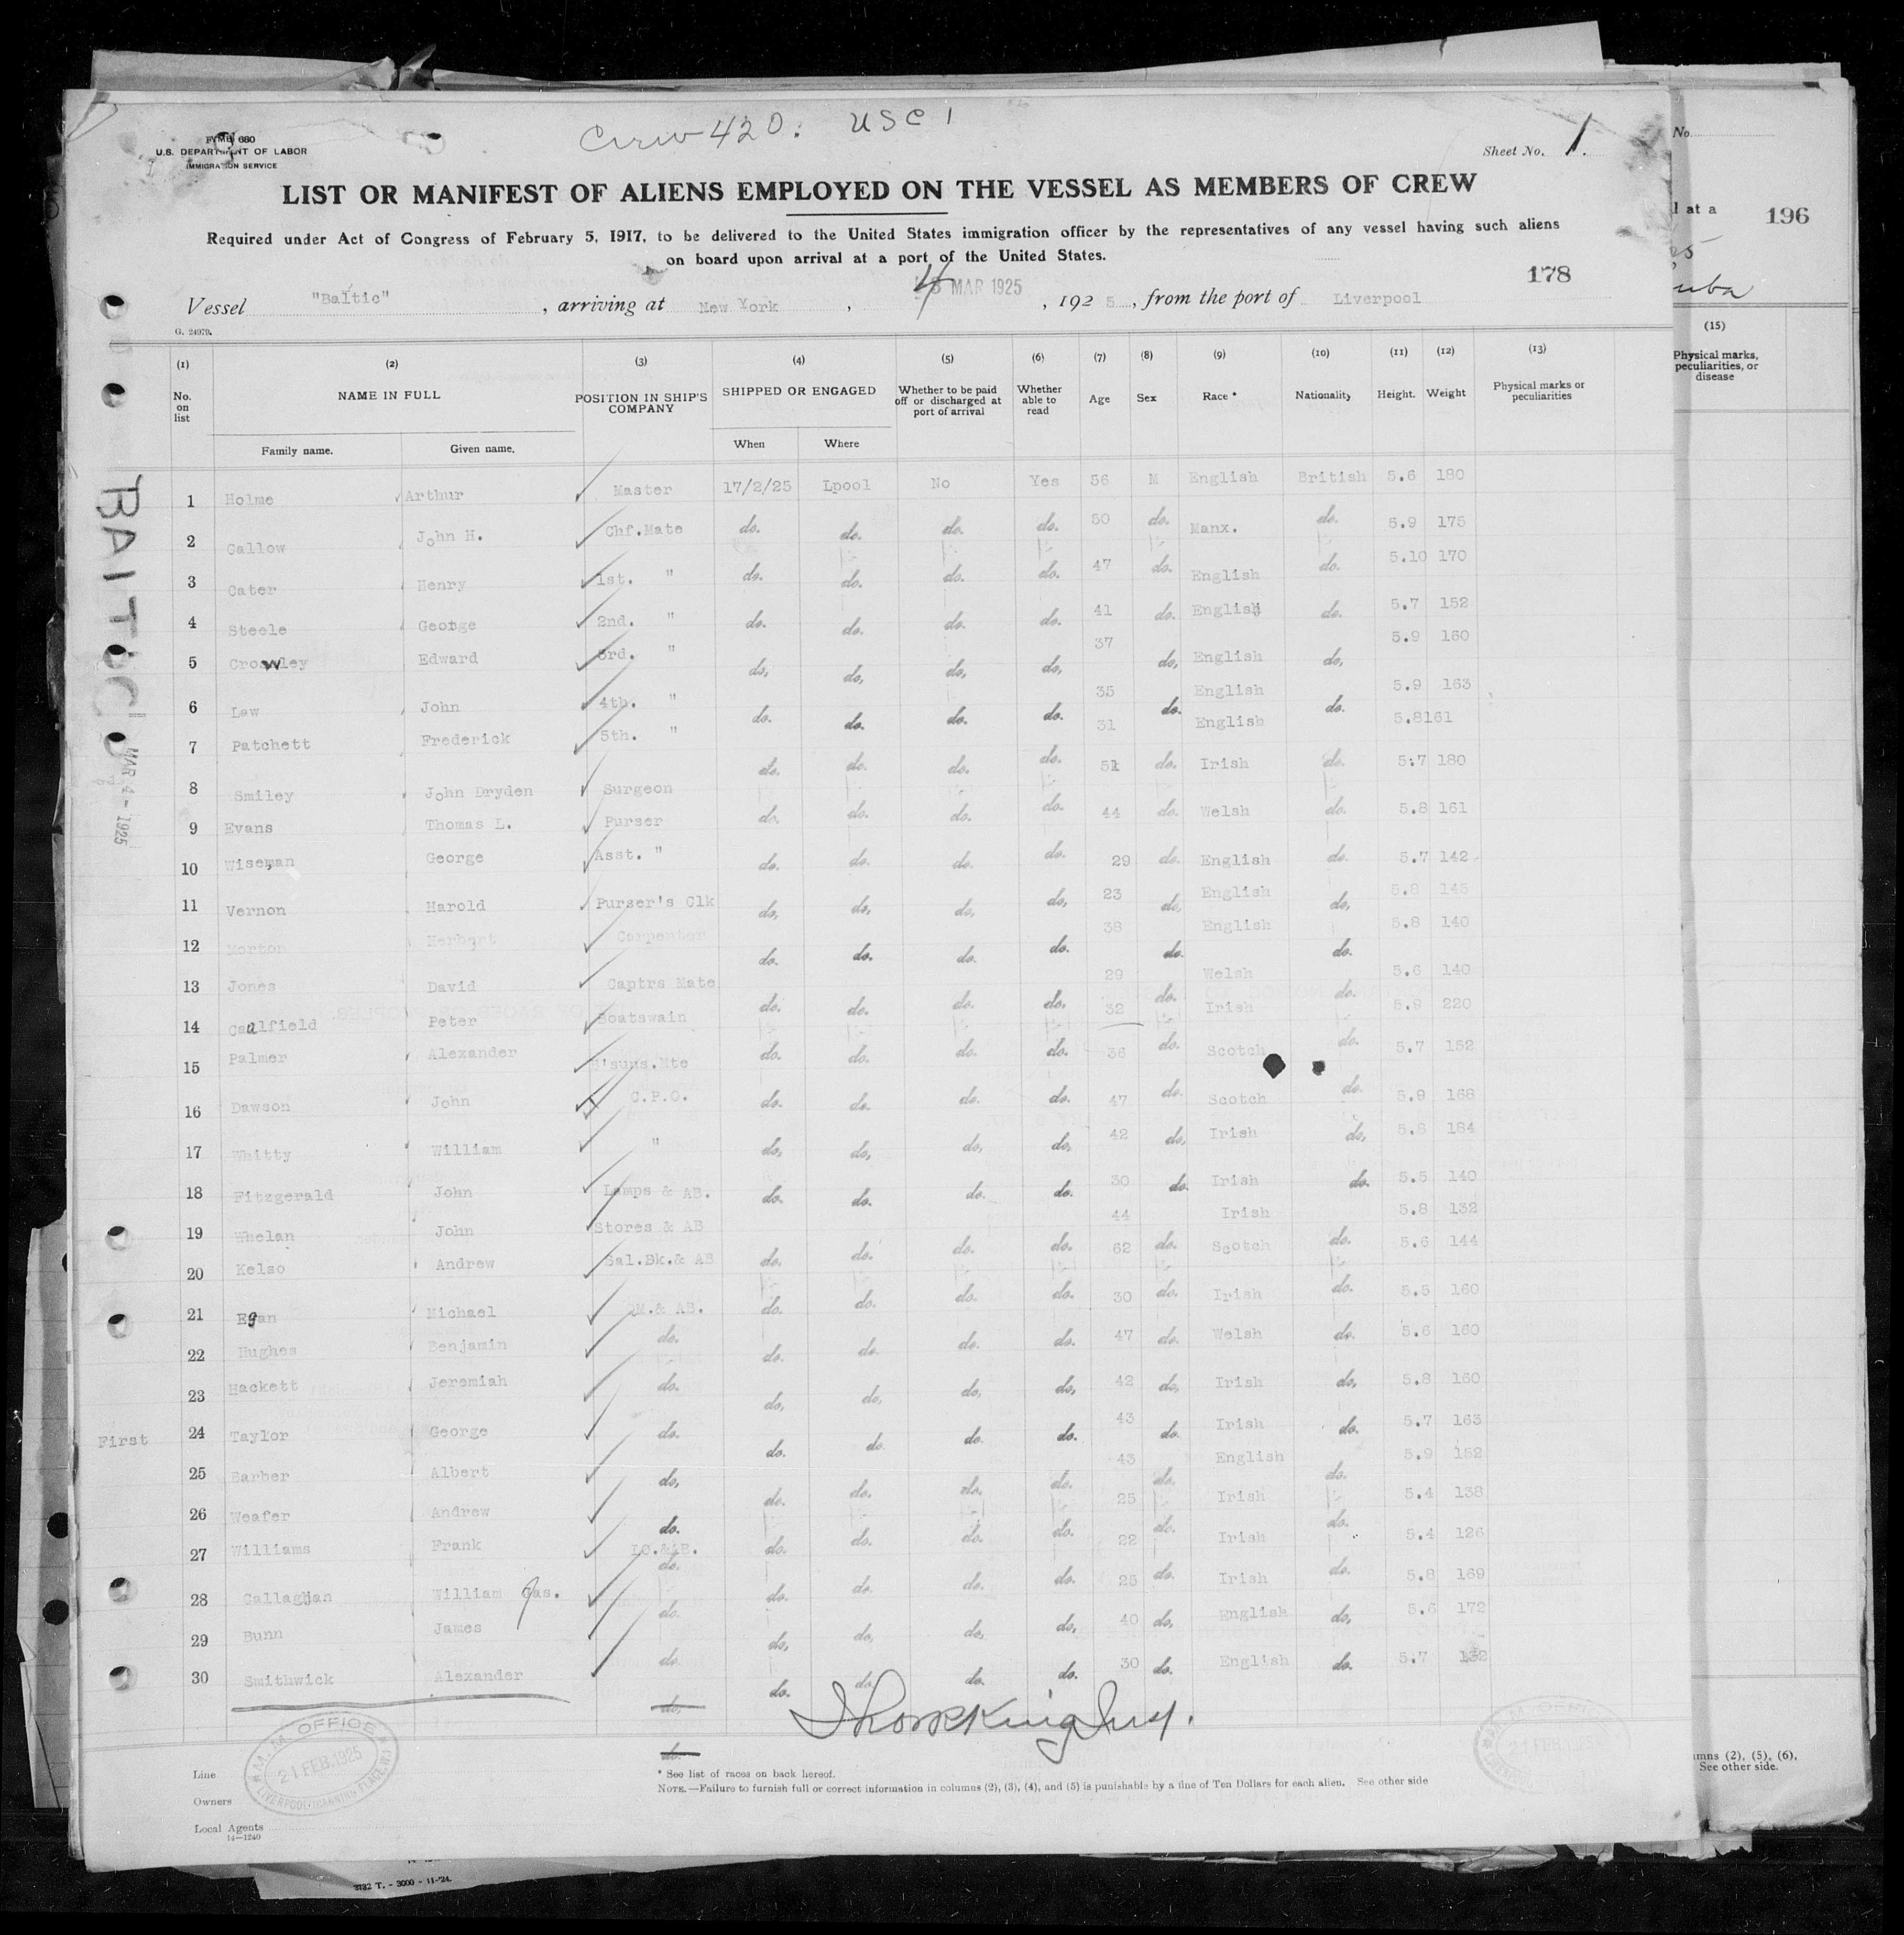 Crew 420: USC 1
FORM 680
U.S. DEPARTMENT OF LABOR
IMMIGRATION SERVICE
Sheet No. 1.
LIST OR MANIFEST OF ALIENS EMPLOYED ON THE VESSEL AS MEMBERS OF CREW
Required under Act of Congress of February 5, 1917, to be delivered to the United States immigration officer by the representatives of any vessel having such aliens
on board upon arrival at a port of the United States.
178
Vessel "Baltic", arriving at New York, 4 MAR 1925, 1925, from the port of Liverpool
G. 24979.
(1) (2) (3) (4) (5) (6) (7) (8) (9) (10) (11) (12) (13)
No. on list NAME IN FULL POSITION IN SHIP'S COMPANY SHIPPED OR ENGAGED Whether to be paid off or discharged at port of arrival Whether able to read Age Sex Race * Nationality Height. Weight Physical marks or peculiarities
Family name. Given name. When Where
1 Holme Arthur Master 17/2/25 Lpool No Yes 56 M English British 5.6 180
2 Gallow John H. Chf.Mate do. do. do. do. 50 do. Manx. do. 5.9 175
3 Cater Henry 1st. " do. do. do. do. 47 do. English do. 5.10 170
4 Steele George 2nd. " do. do. do. do. 41 do. English do. 5.7 152
5 Crowley Edward 3rd. " do. do. do. do. 37 do. English do. 5.9 160
6 Law John 4th. " do. do. do. do. 35 do. English do. 5.9 163
7 Patchett Frederick 5th. " 31 English 5.8 161
8 Smiley John Dryden Surgeon do. do. do. do. 51 do. Irish do. 5.7 180
9 Evans Thomas L. Purser do. do. do. do. 44 do. Welsh do. 5.8 161
10 Wiseman George Asst. " do. do. do. do. 29 do. English do. 5.7 142
11 Vernon Harold Purser's Clk do. do. do. do. 23 do. English do. 5.8 145
12 Morton Herbert Carpenter do. do. do. do. 38 do. English do. 5.8 140
13 Jones David Captrs Mate do. do. do. do. 29 do. Welsh do. 5.6 140
14 Caulfield Peter Boatswain 32 Irish 5.9 220
15 Palmer Alexander B'suns.Mte do. do. do. do. 36 do. Scotch do. 5.7 152
16 Dawson John C.P.O. do. do. do. do. 47 do. Scotch do. 5.9 168
17 Whitty William " do. do. do. do. 42 do. Irish do. 5.8 184
18 Fitzgerald John Lamps & AB. do. do. do. do. 30 do. Irish do. 5.5 140
19 Whelan John Stores & AB 44 Irish 5.8 132
20 Kelso Andrew Sal.Bk.& AB do. do. do. do. 62 do. Scotch do. 5.6 144
21 Egan Michael QM.& AB. do. do. do. do. 30 do. Irish do. 5.5 160
22 Hughes Benjamin do. do. do. do. do. 47 do. Welsh do. 5.6 160
23 Hackett Jeremiah do. do. do. do. do. 42 do. Irish do. 5.8 160
First 24 Taylor George do. do. do. do. do. 43 do. Irish do. 5.7 163
25 Barber Albert do. do. do. do. do. 43 do. English do. 5.9 152
26 Weafer Andrew do. 25 Irish 5.4 138
27 Williams Frank LO.&AB. do. do. do. do. 22 do. Irish do. 5.4 126
28 Callaghan William Jas. do. do. do. do. do. 25 do. Irish do. 5.8 169
29 Bunn James do. do. do. do. do. 40 do. English do. 5.6 172
30 Smithwick Alexander do. do. do. do. do. 30 do. English do. 5.7 132
do.
do.
BALTIC
MAR 4 - 1925
M.M. OFFICE
21 FEB.1925
LIVERPOOL (CANNING PLACE)
M.M. OFFICE
21 FEB.1925
Line
Owners
Local Agents
14—1240
* See list of races on back hereof.
NOTE.—Failure to furnish full or correct information in columns (2), (3), (4), and (5) is punishable by a fine of Ten Dollars for each alien. See other side
3732 T. - 3000 - 11-'24.
No.
l at a 196
uba
(15)
Physical marks, peculiarities, or disease
umns (2), (5), (6),
See other side.